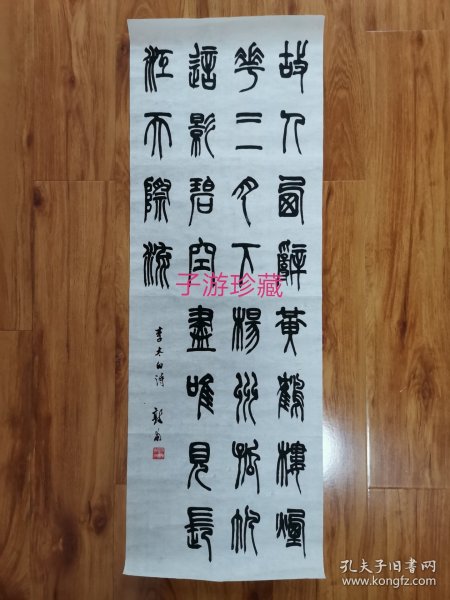 故人西辭黃鶴樓煙
華三月下楊州孤帆
遠影碧空盡唯見長
江天際流
李太白詩
子游珍藏
孔夫子旧书网
www.kongfz.com